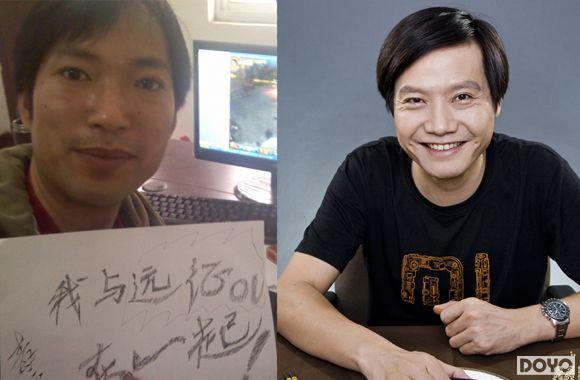 我与远征OL
在一起!
MI
DOYO